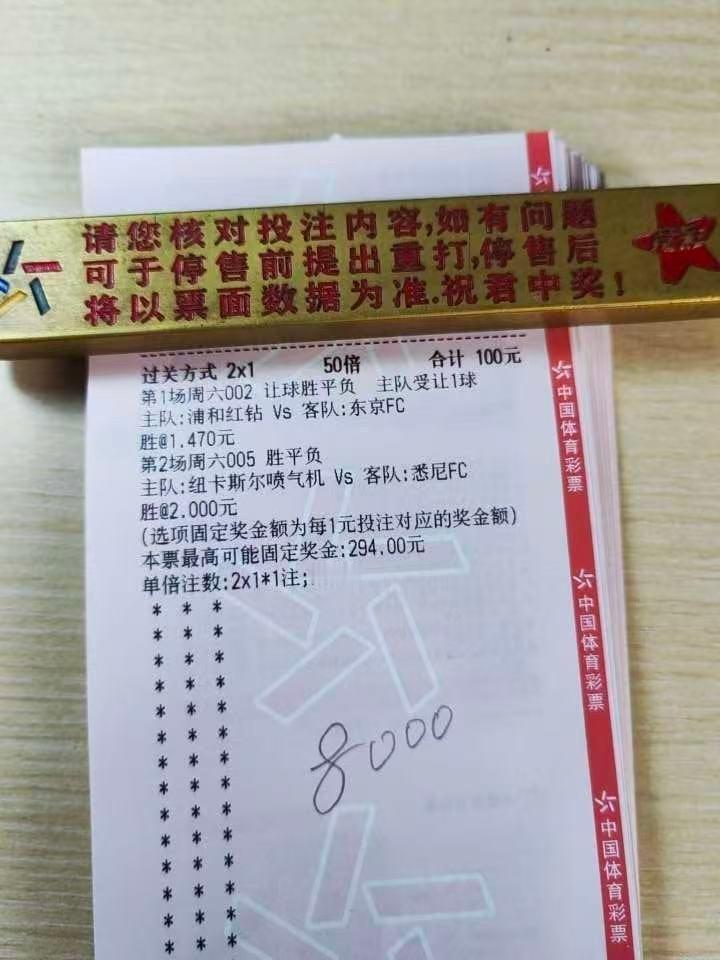 请您核对投注内容,如有问题
可于停售前提出重打,停售后
将以票面数据为准.祝君中奖!
过关方式 2x1 50倍 合计 100元
第1场周六002 让球胜平负 主队受让1球
主队:浦和红钻 Vs 客队:东京FC
胜@1.470元
第2场周六005 胜平负
主队:纽卡斯尔喷气机 Vs 客队:悉尼FC
胜@2.000元
(选项固定奖金额为每1元投注对应的奖金额)
本票最高可能固定奖金:294.00元
单倍注数:2x1*1注;
* * *
* * *
* * *
* * *
* * *
* * *
* * *
* * *
* * *
* * *
* * *
* * *
* * *
* * *
8000
中国体育彩票
中国体育彩票
中国体育彩票